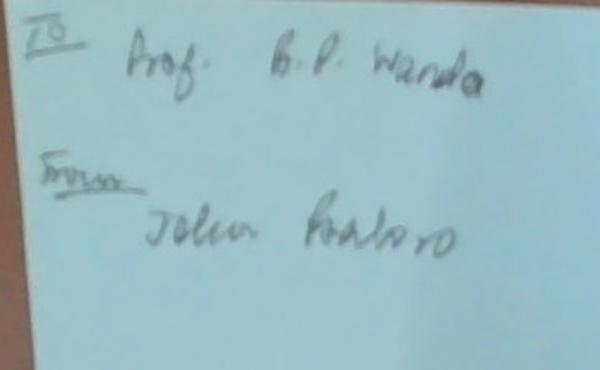 To
Prof. B. P. Wanda
From
John